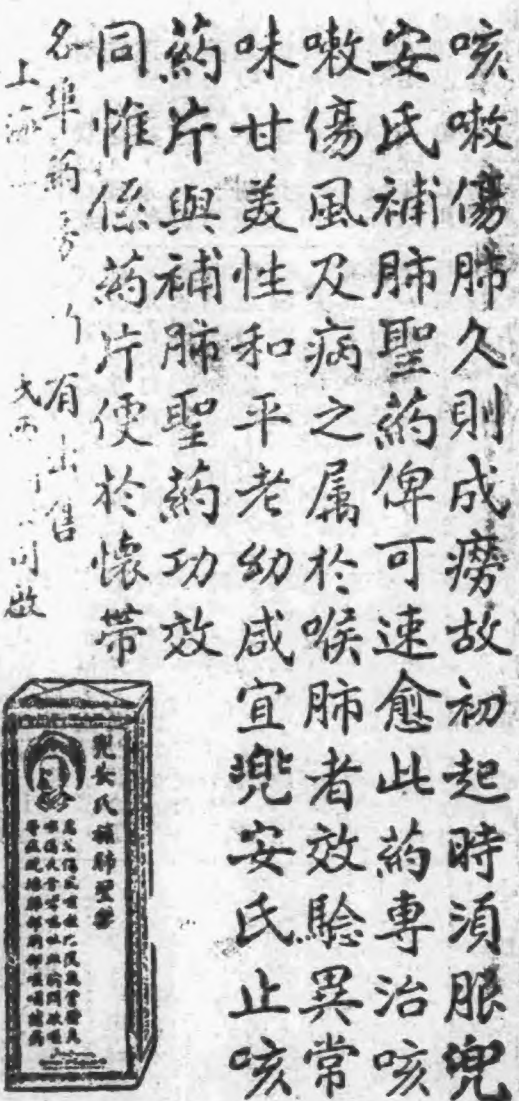 咳嗽傷肺久則成癆故初起時須服兜
安氏補肺聖葯俾可速愈此葯専治咳
嗽傷風及病之属於喉肺者效騐異常
味甘美性和平老幼咸宜兜安氏止咳
葯片與補肺聖葯功效
同惟係葯片便於懐帶
各埠葯房有出售
上海
司啟
兜安氏補肺聖藥